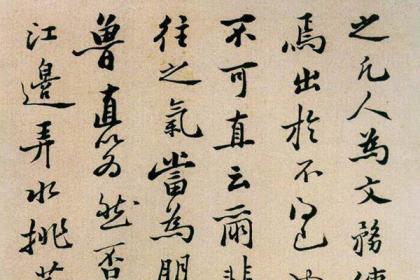 之凡人為文務
焉出於不得已
不可直云爾
往之氣當為朋
魯直以為然否
江邊弄水挑菜